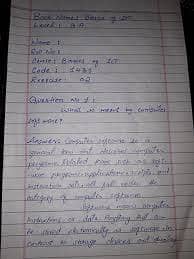 Book Name: Basics of ICT
Level: B.A
Name:
Roll No:
Course: Basics of ICT
Code: 1431
Exercise: 02
Question No 1:
What is meant by computer
software?
Answer: Computer software is a
general term that describes computer
programs. Related terms such as
programs, applications, scripts, and
instruction sets all fall under the
category of computer software.
Software means computer
instructions or data. Anything that can
be stored electronically is software in
contrast to storage devices and display